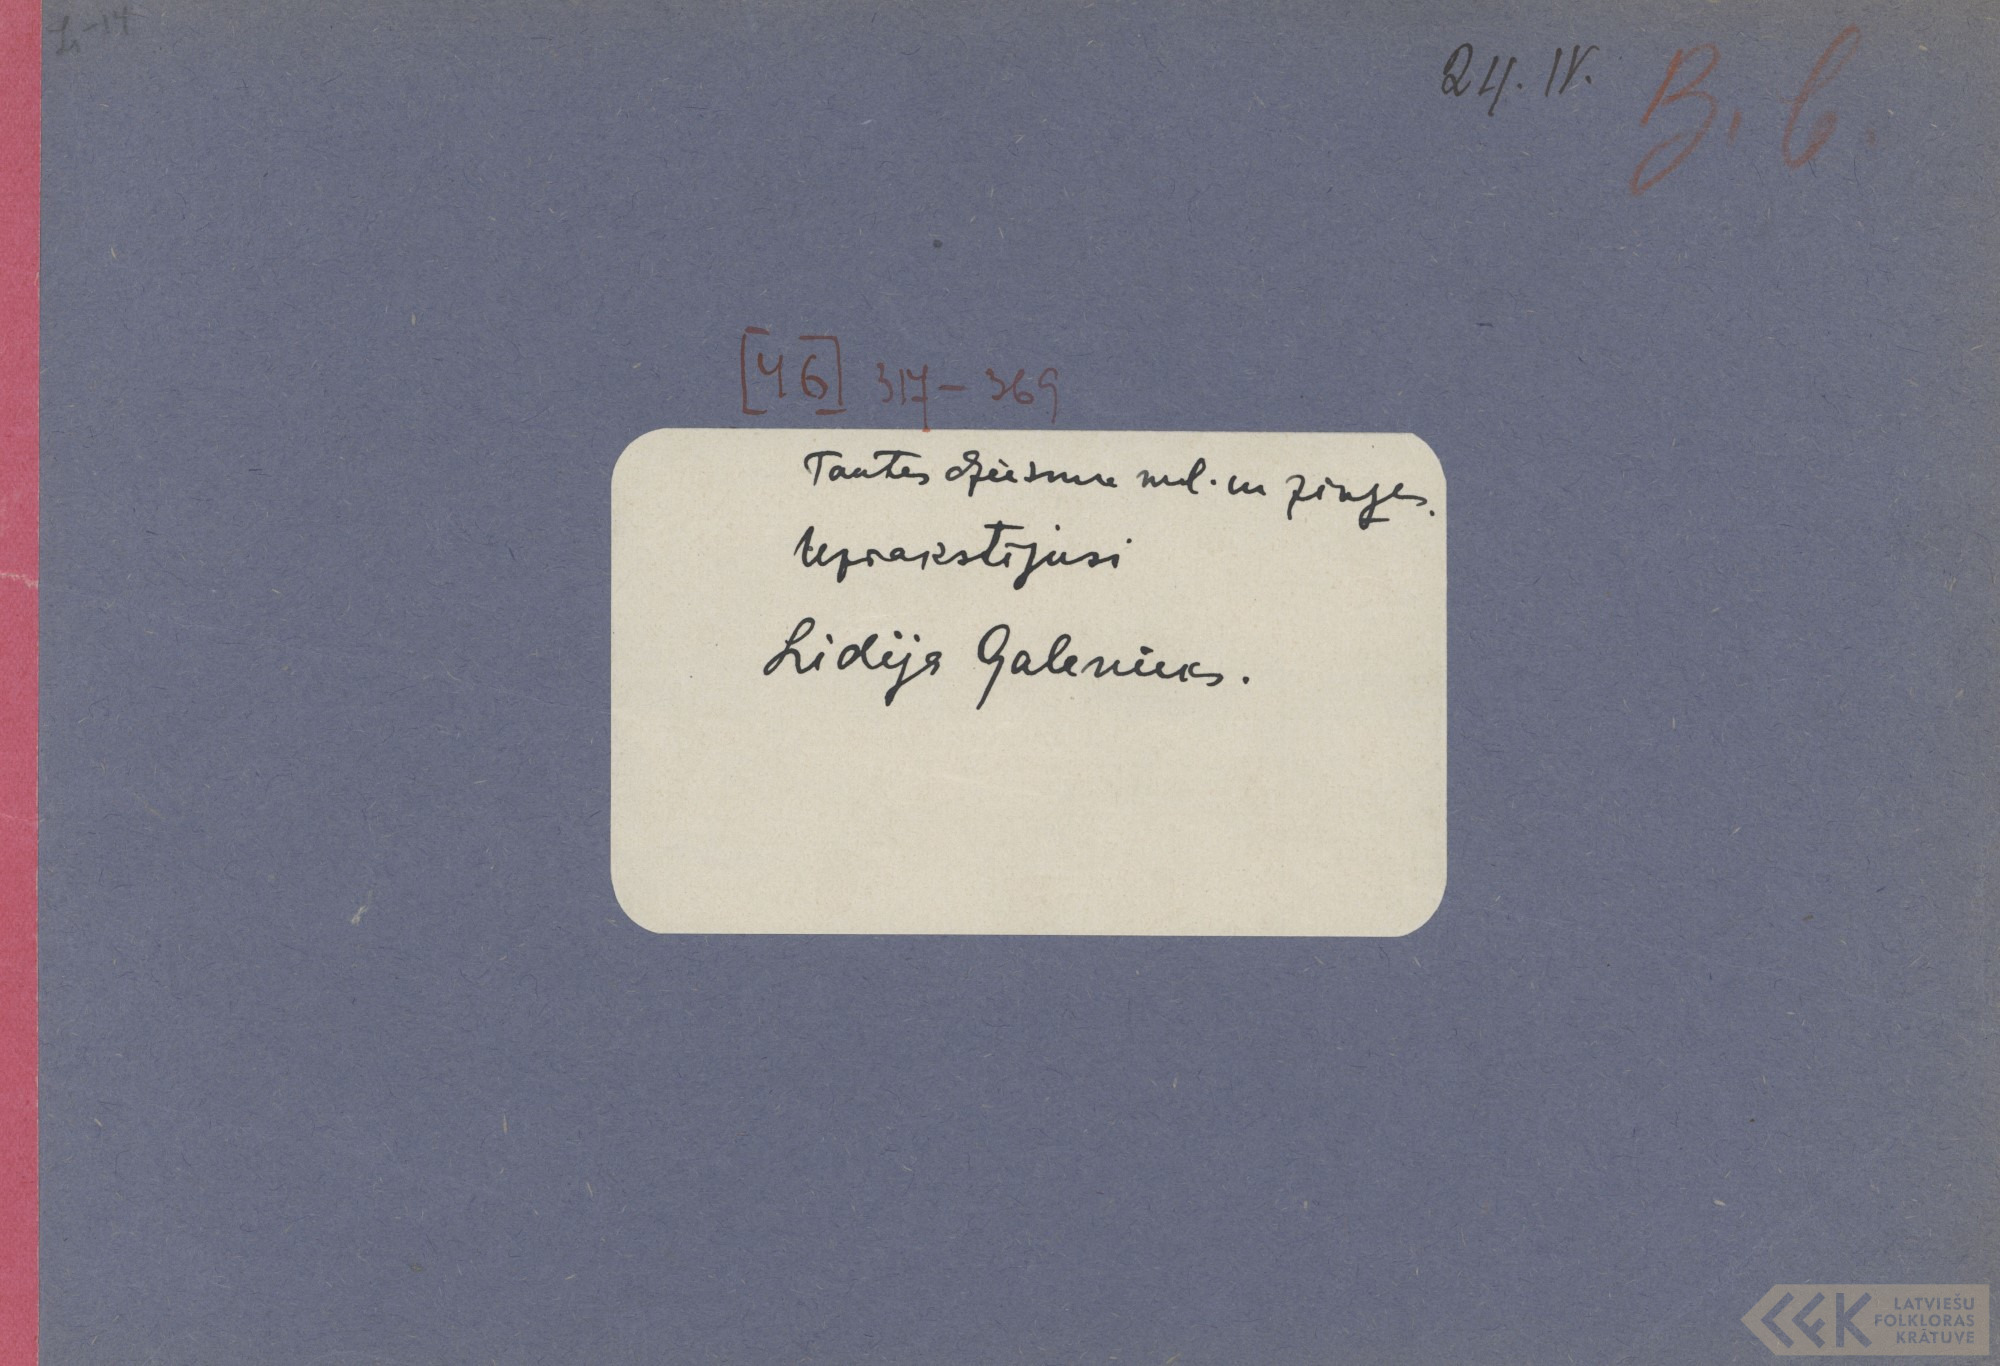 24. IV.
B. C.
[46] 317-369
Tautas dziesmu mel. un ziņges.
Uzrakstījusi
Lidija Galenieks.
LATVIEŠU
FOLKLORAS
KRĀTUVE